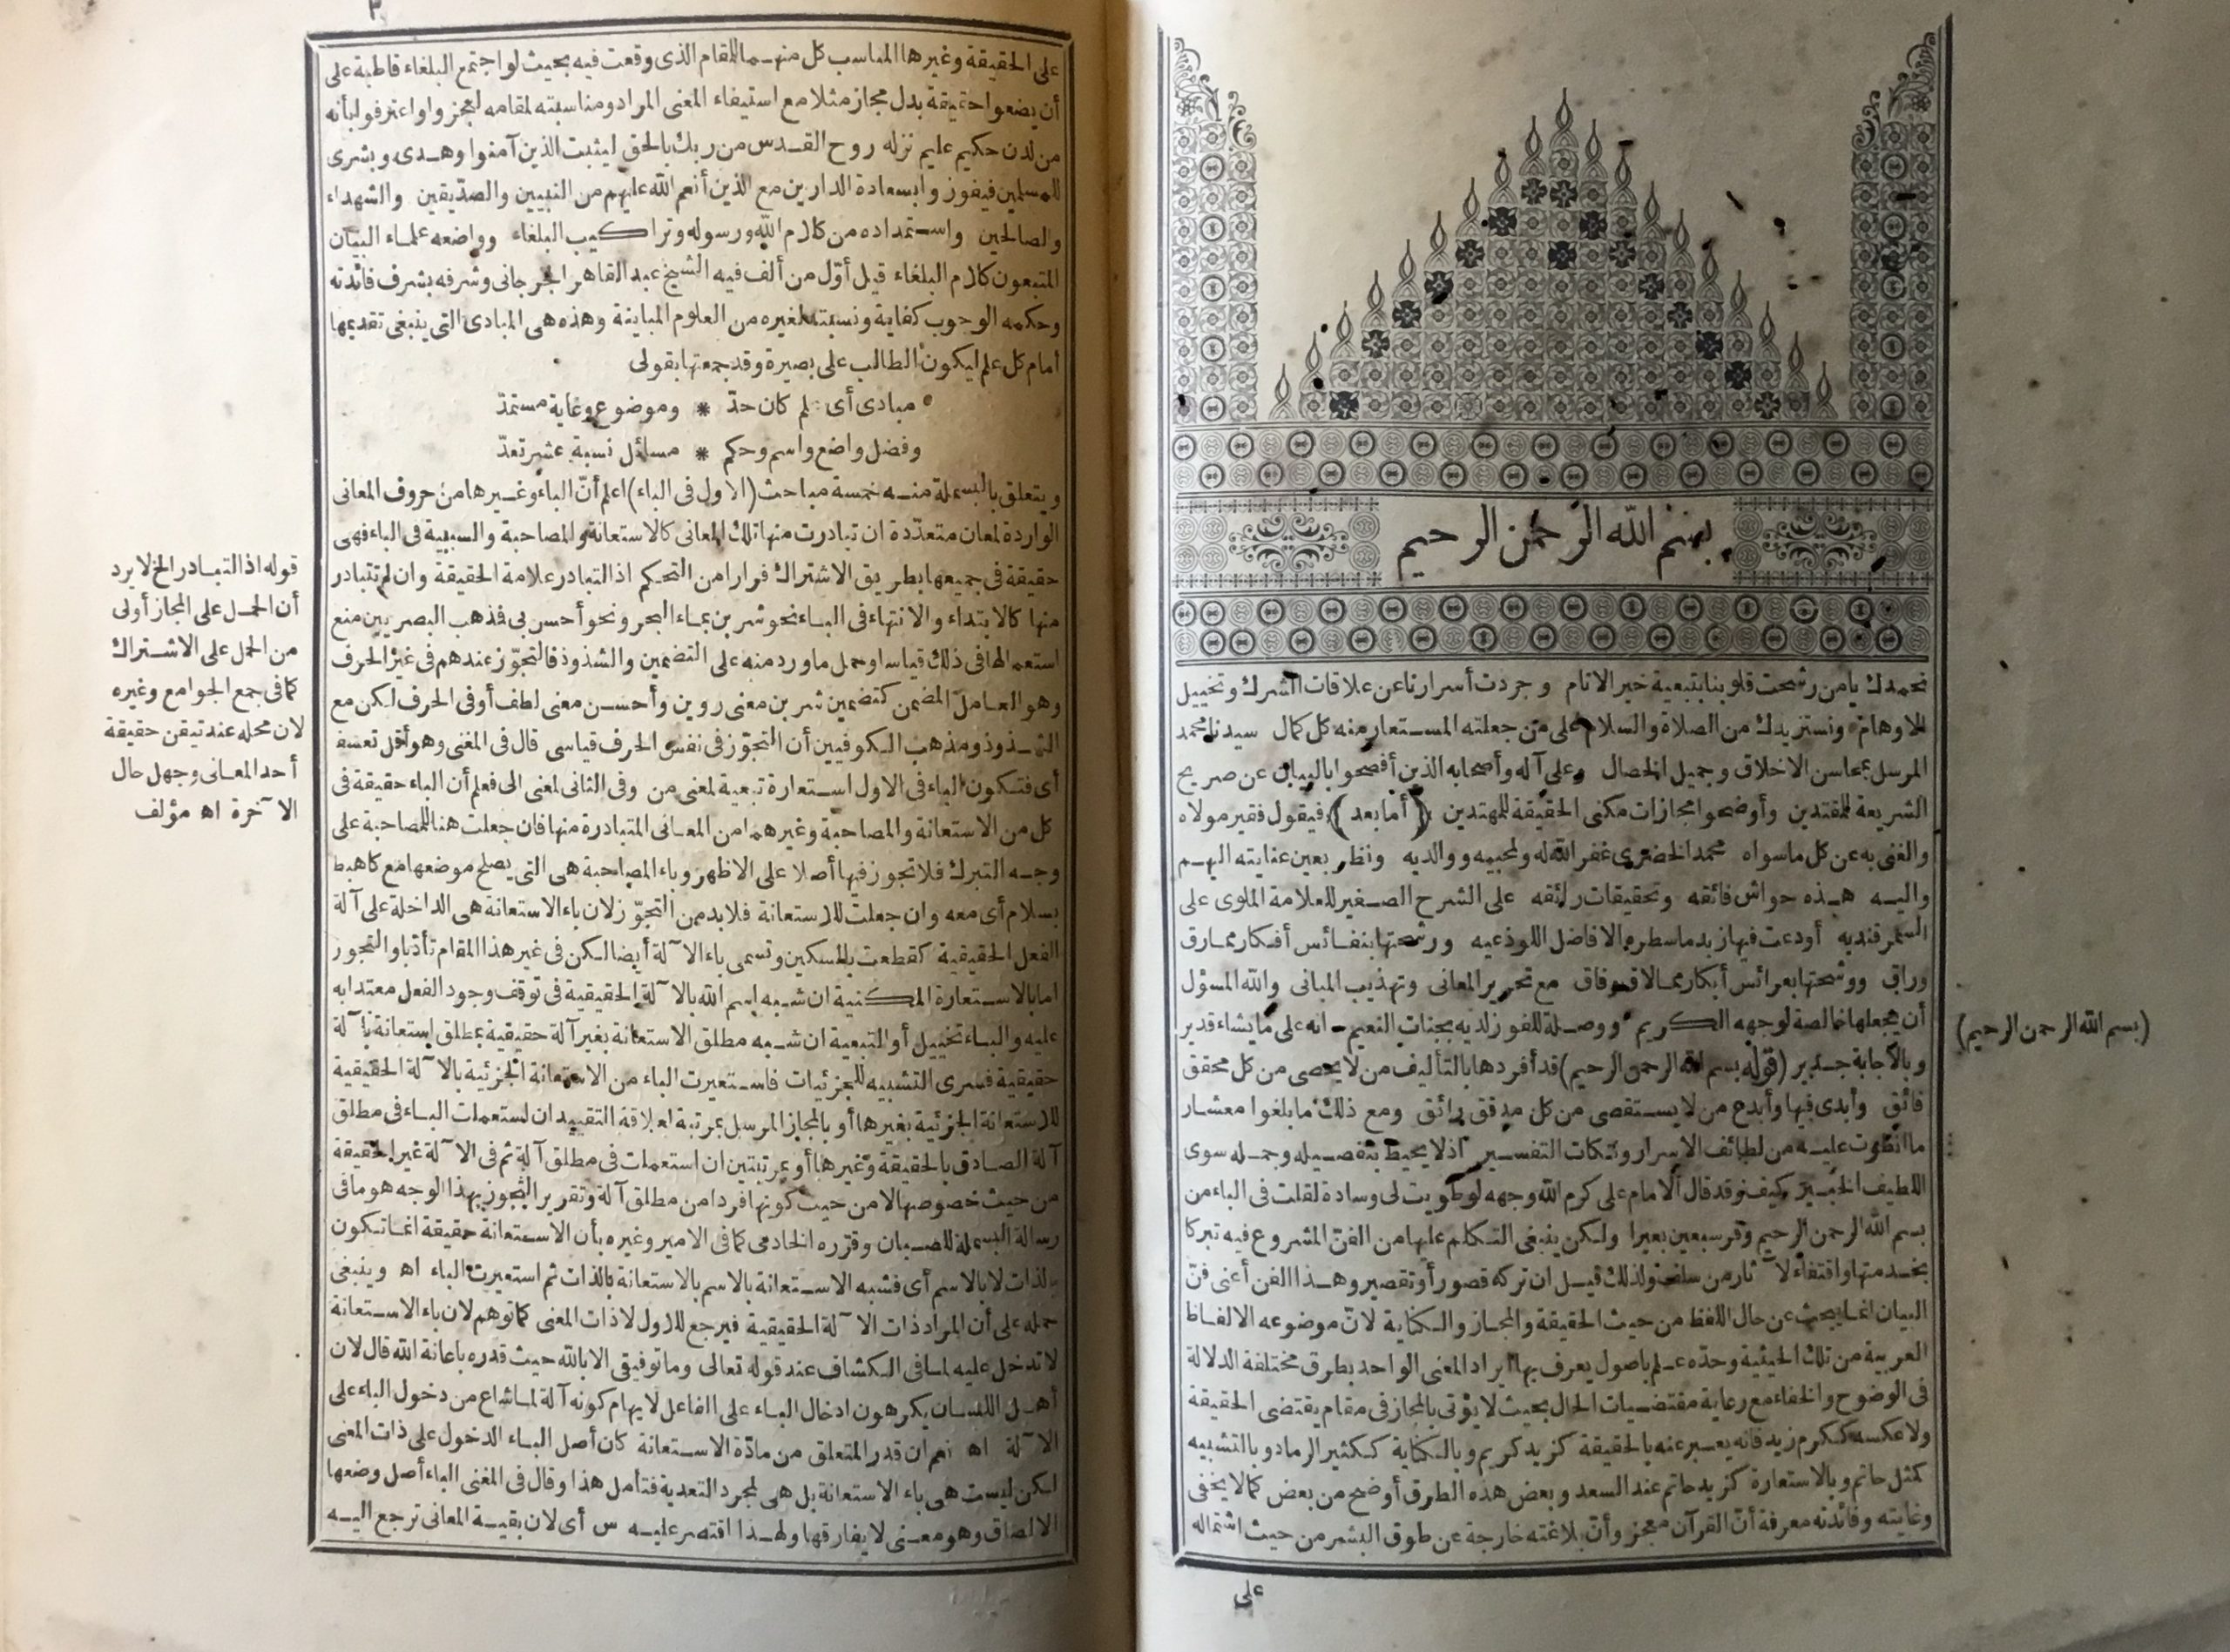 بسم الله الرحمن الرحيم
نحمدك يا من رشحت قلوبنا بتبعية خير الانام وجردت أسرارنا عن علاقات الشرك وتخييل
الاوهام ونستزيدك من الصلاة والسلام على من جعلته المستعار منه كل كمال سيدنا محمد
المرسل بمحاسن الاخلاق وجميل الخصال وعلى آله وأصحابه الذين أفصحوا بالبيان عن صريح
الشريعة للمقتدين وأوضحوا مجازات مكنى الحقيقة للمهتدين (أما بعد) فيقول فقير مولاه
والغنى به عن كل ما سواه محمد الخضرى غفر الله له ولمحبيه ووالديه ونظر بعين عنايته اليهم
واليه هذه حواش فائقه وتحقيقات رائقه على الشرح الصغير للعلامة الملوى على
السمرقنديه أودعت فيها زبد ما سطره الافاضل اللوذعيه ورشحتها بنفائس أفكار مما رق
وراق ووشحتها بعرائس أبكار مما لاق وفاق مع تحرير المعانى وتهذيب المبانى والله المسؤل
أن يجعلها خالصة لوجهه الكريم ووصلة للفوز لديه بجنات النعيم انه على ما يشاء قدير
(بسم الله الرحمن الرحيم)
وبالاجابة جدير (قوله بسم الله الرحمن الرحيم) قد أفردها بالتأليف من لا يحصى من كل محقق
فائق وأبدى فيها وأبدع من لا يستقصى من كل مدقق رائق ومع ذلك ما بلغوا معشار
ما انطوت عليه من لطائف الاسرار ونكات التفسير اذ لا يحيط بتفصيله وجمله سوى
اللطيف الخبير كيف وقد قال الامام على كرم الله وجهه لو طويت لى وسادة لقلت فى الباء من
بسم الله الرحمن الرحيم وقر سبعين بعيرا ولكن ينبغى التكلم عليها من الفن المشروع فيه تبركا
بخدمتها واقتفاء لآثار من سلف ولذلك قيل ان تركه قصور أو تقصير وهذا الفن أعنى فنّ
البيان انما يبحث عن حال اللفظ من حيث الحقيقة والمجاز والكناية لانّ موضوعه الالفاظ
العربية من تلك الحيثية وحدّه علم باصول يعرف بها ايراد المعنى الواحد بطرق مختلفة الدلالة
فى الوضوح والخفاء مع رعاية مقتضيات الحال بحيث لا يؤتى بالمجاز فى مقام يقتضى الحقيقة
ولا عكسه ككرم زيد فانه يعبر عنه بالحقيقة كزيد كريم وبالكناية ككثير الرماد وبالتشبيه
كمثل حاتم وبالاستعارة كزيد حاتم عند السعد وبعض هذه الطرق أوضح من بعض كما لا يخفى
وغايته وفائدته معرفة أنّ القرآن معجز وأنّ بلاغته خارجة عن طوق البشر من حيث اشتماله
على
٣
على الحقيقة وغيرها المناسب كل منهما للمقام الذى وقعت فيه بحيث لو اجتمع البلغاء قاطبة على
أن يضعوا حقيقة بدل مجاز مثلا مع استيفاء المعنى المراد ومناسبته لمقامه لعجزوا واعترفوا بأنه
من لدن حكيم عليم نزله روح القدس من ربك بالحق ليثبت الذين آمنوا وهدى وبشرى
للمسلمين فيفوزوا بسعادة الدارين مع الذين أنعم الله عليهم من النبيين والصدّيقين والشهداء
والصالحين واستمداده من كلام الله ورسوله وتراكيب البلغاء وواضعه علماء البيان
المتبعون كلام البلغاء قيل أوّل من ألف فيه الشيخ عبد القاهر الجرجانى وشرفه بشرف فائدته
وحكمه الوجوب كفاية ونسبته لغيره من العلوم المباينة وهذه هى المبادى التى ينبغى تقديمها
أمام كل علم ليكون الطالب على بصيرة وقد جمعتها بقولى
مبادى أى علم كان حدّ * وموضوع وغاية مستمدّ
وفضل واضع واسم وحكم * مسائل نسبة عشر تعدّ
ويتعلق بالبسملة منه خمسة مباحث (الاول فى الباء) اعلم أنّ الباء وغيرها من حروف المعانى
الواردة لمعان متعدّدة ان تبادرت منها تلك المعانى كالاستعانة والمصاحبة والسببية فى الباء فهى
حقيقة فى جميعها بطريق الاشتراك فرارا من التحكم اذ التبادر علامة الحقيقة وان لم تتبادر
منها كالابتداء والانتهاء فى الباء نحو شربن بماء البحر ونحو أحسن بى فذهب البصريين منع
استعمالها فى ذلك قياسا وحمل ما ورد منه على التضمين والشذوذ فالتجوّز عندهم فى غير الحرف
وهو العامل المضمن كتضمين شربن معنى روين وأحسن معنى لطف أو فى الحرف لكن مع
الشذوذ ومذهب الكوفيين أن التجوّز فى نفس الحرف قياسى قال فى المغنى وهو أقل تعسف
أى فتكون الباء فى الاول استعارة تبعية لمعنى من وفى الثانى لمعنى الى فعلم أن الباء حقيقة فى
كل من الاستعانة والمصاحبة وغيرهما من المعانى المتبادرة منها فان جعلت هنا للمصاحبة على
وجه التبرك فلا تجوز فيها أصلا على الاظهر وباء المصاحبة هى التى يصلح موضعها مع كاهبط
بسلام أى معه وان جعلت للاستعانة فلا بد من التجوّز لان باء الاستعانة هى الداخلة على آلة
الفعل الحقيقية كقطعت بالسكين وتسمى باء الآلة أيضا لكن فى غير هذا المقام تأدبا والتجوز
اما بالاستعارة المكنية ان شبه اسم الله بالآلة الحقيقية فى توقف وجود الفعل معتدا به
عليه والباء تخييل أو التبعية ان شبه مطلق الاستعانة بغير آلة حقيقية بمطلق استعانة بآلة
حقيقية فسرى التشبيه للجزئيات فاستعيرت الباء من الاستعانة الجزئية بالآلة الحقيقية
للاستعانة الجزئية بغيرها أو بالمجاز المرسل بمرتبة لعلاقة التقييد ان استعملت الباء فى مطلق
آلة الصادق بالحقيقة وغيرها أو بمرتبتين ان استعملت فى مطلق آلة ثم فى الآلة غير الحقيقة
من حيث خصوصها لا من حيث كونها فردا من مطلق آلة وتقرير التجوز بهذا الوجه هو ما فى
رسالة البسملة للصبان وقرّره الخادمى كما فى الامير وغيره بأن الاستعانة حقيقة انما تكون
بالذات لا بالاسم أى فشبه الاستعانة بالاسم بالاستعانة بالذات ثم استعيرت الباء اه وينبغى
حمله على أن المراد ذات الآلة الحقيقية فيرجع للاول لا ذات المعنى كما توهم لان باء الاستعانة
لا تدخل عليه لما فى الكشاف عند قوله تعالى وما توفيقى الا بالله حيث قدره باعانة الله قال لان
أهل اللسان يكرهون ادخال الباء على الفاعل لايهام كونه آلة لما شاع من دخول الباء على
الآلة اه نعم ان قدر المتعلق من مادّة الاستعانة كان أصل الباء الدخول على ذات المعنى
لكن ليست هى باء الاستعانة بل هى لمجرد التعدية فتأمل هذا وقال فى المغنى الباء أصل وضعها
الالصاق وهو معنى لا يفارقها ولهذا اقتصر عليه س أى لان بقية المعانى ترجع اليه
قوله اذ التبادر الخ لا يرد
أن الحمل على المجاز أولى
من الحمل على الاشتراك
كما فى جمع الجوامع وغيره
لان محله عند تيقن حقيقة
أحد المعانى وجهل حال
الآخرة اه مؤلف